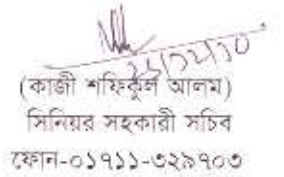 (কাজী শফিকুল আলম)
সিনিয়র সহকারী সচিব
ফোন-০১৭১১-৩২৯৭০৩